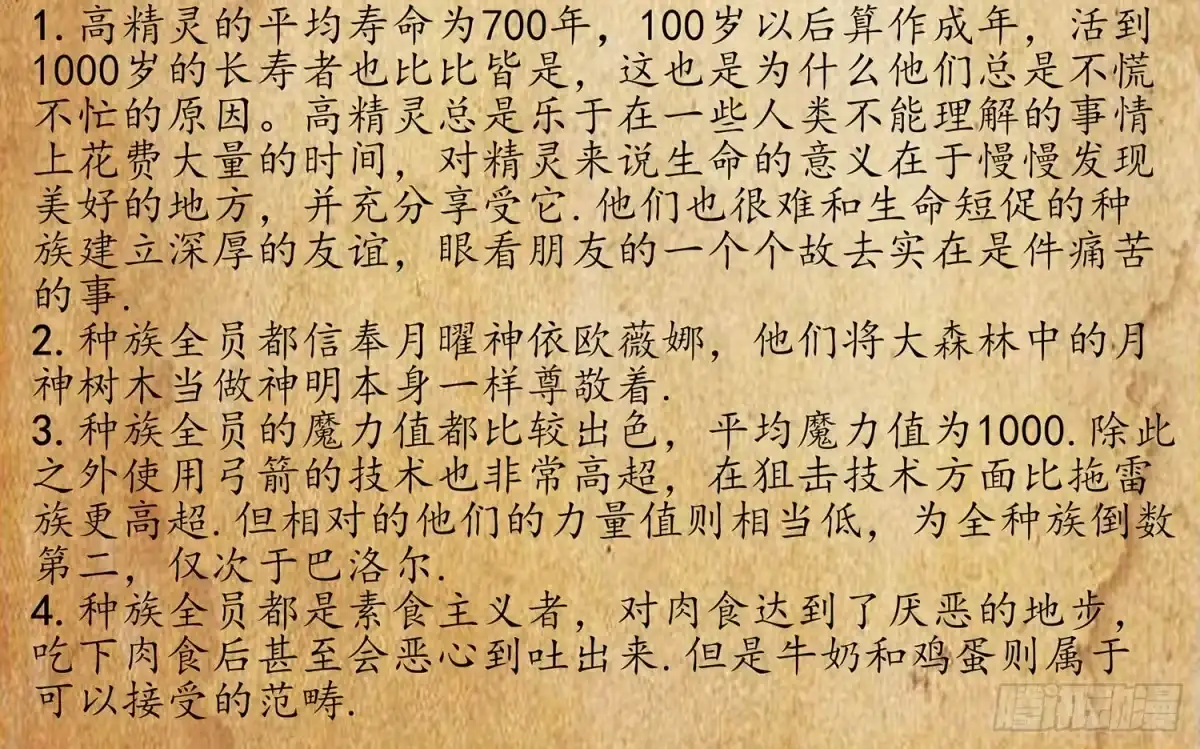 1. 高精灵的平均寿命为700年，100岁以后算作成年，活到
1000岁的长寿者也比比皆是，这也是为什么他们总是不慌
不忙的原因。高精灵总是乐于在一些人类不能理解的事情
上花费大量的时间，对精灵来说生命的意义在于慢慢发现
美好的地方，并充分享受它.他们也很难和生命短促的种
族建立深厚的友谊，眼看朋友的一个个故去实在是件痛苦
的事.
2. 种族全员都信奉月曜神依欧薇娜，他们将大森林中的月
神树木当做神明本身一样尊敬着.
3. 种族全员的魔力值都比较出色，平均魔力值为1000.除此
之外使用弓箭的技术也非常高超，在狙击技术方面比拖雷
族更高超.但相对的他们的力量值则相当低，为全种族倒数
第二，仅次于巴洛尔.
4. 种族全员都是素食主义者，对肉食达到了厌恶的地步，
吃下肉食后甚至会恶心到吐出来.但是牛奶和鸡蛋则属于
可以接受的范畴.
腾讯动漫